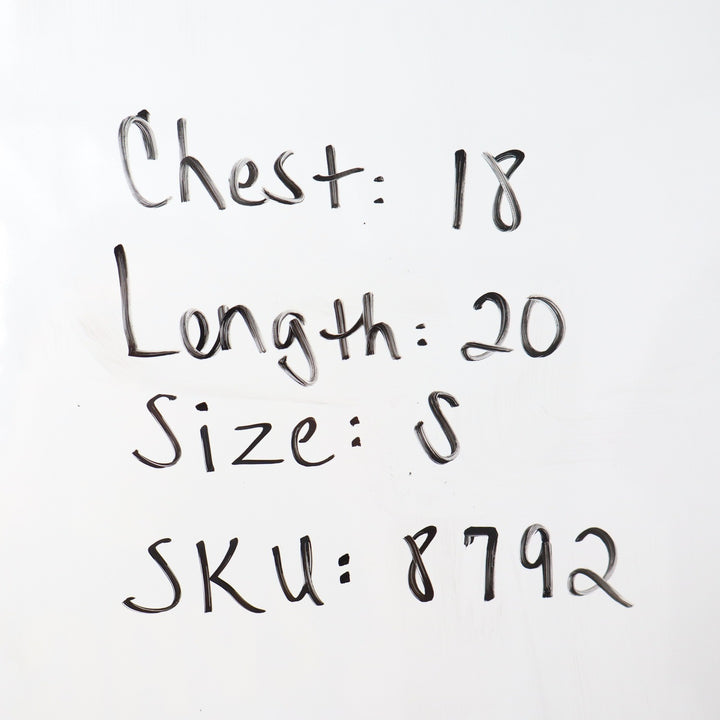 Chest: 18
Length: 20
Size: S
SKU: 8792